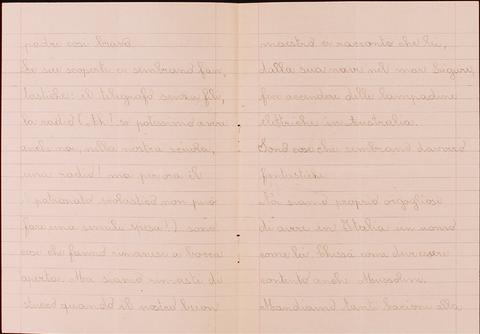 padre così bravo.
Le sue scoperte ci sembrano fan,
tastiche: il telegrafo senza fili,
la radio (Ah! se potessimo avere
anche noi, nella nostra scuola,
una radio! ma per ora il
patronato scolastico non può
fare una simile spesa!) sono
cose che fanno rimanere a bocca
aperta. Ma siamo rimasti di
stucco quando il nostro buon
maestro ci raccontò che lei,
dalla sua nave nel mar Ligure
fece accendere delle lampadine
elettriche in Australia.
Sono cose che sembrano davvero
fantastiche.
siamo proprio orgogliosi
di avere in Italia un uomo
come lei. Chissà come dev'essere
contento anche Mussolini.
Mandiamo tanti bacioni alla